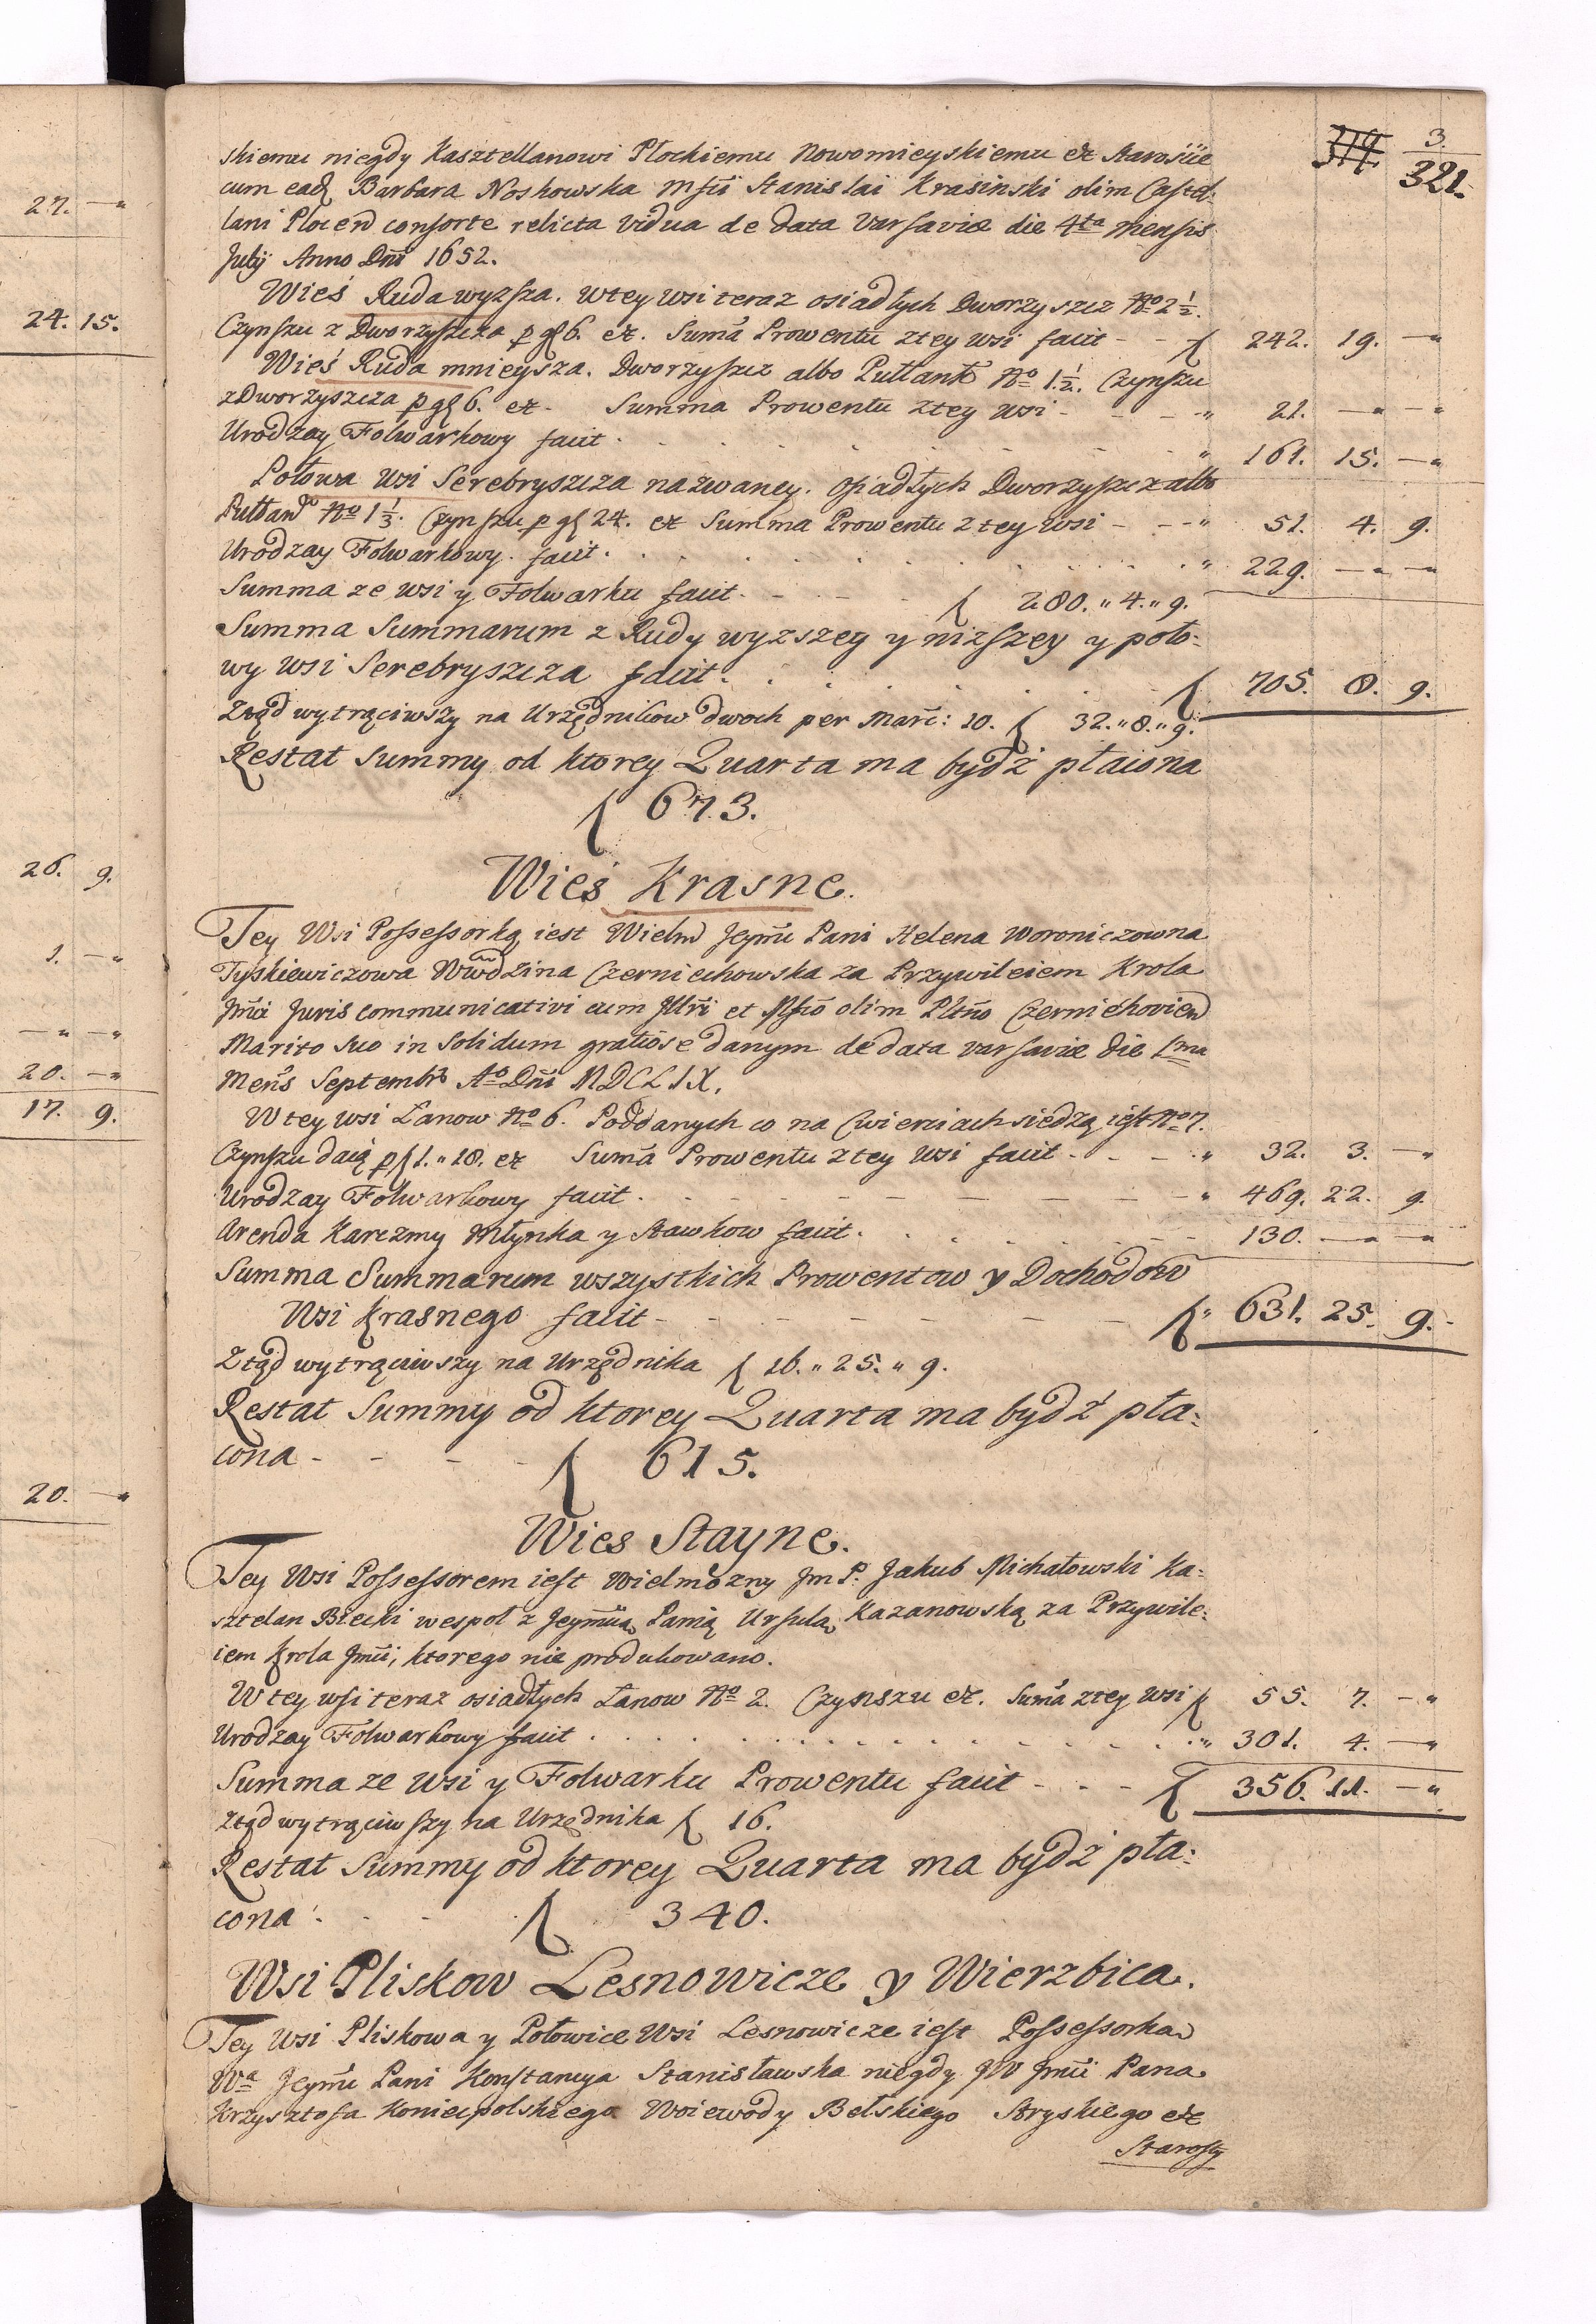 27. —„
24. 15.
26. 9.
1. —„
—„ —„
20. —„
17. 9.
20. —„
3.
321.
skiemu niegdy Kasztellanowi Płockiemu Nowomieyskiemu etc Starosćie
cum eadę Barbara Noskowska Mſci Stanislai Krasinski olim Castel-
lani Plocen consorte relicta vidua de data Varsaviæ die 4ta Mensis
July Anno Dni 1652.
Wieś Ruda wyższa. w tey wsi teraz osiadłych Dworzyszcz No 2 1/2.
Czynszu z Dworzyszcza p gſ 6. etc. Summa Prowentu z tey wsi facit - - ſ 242. 19. —„
Wieś Ruda mnieysza. Dworzyszcz albo Pułłank No 1. 1/2. Czynszu
z Dworzyszcza p gſ 6. etc. Summa Prowentu z tey wsi - - - „ 21. —„ —„
Urodzay Folwarkowy facit . . . . „ 161. 15. —„
Połowa wsi Serebryszcza nazwaney. Osiadłych Dworzyszcz albo
Pułłan No 1 1/3. Czynszu p gſ 24. etc Summa Prowentu z tey wsi - - - „ 51. 4. 9.
Urodzay Folwarkowy. facit . . . . „ 229. —„ —„
Summa ze wsi y Folwarku facit - - - - ſ 280. „ 4. „ 9.
Summa Summarum z Rudy wyzszey y nizszey y poło-
wy wsi Serebryszcza facit . . . . ſ 705. 8. 9.
Ztąd wytrąciwszy na Urzędnikow dwoch per Marc: 10. ſ 32. „ 8. „ 9.
Restat Summy od ktorey Quarta ma bydź płaiona
ſ 673.
Wieś Krasne.
Tey Wsi Possessorką iest Wielm Jeymci Pani Helena Woroniczowna
Tyskiewiczowa Wwdzina Czerniechowska za Przywileiem Krola
Jmci Juris communicativi cum Illri et Mſco olim Pltno Czerniehovien
Marito suo in Solidum gratiose danym de data Varsaviæ die 1ma
Mens Septembr Ao Dni MDCLIX.
W tey wsi Łanow No 6. Poddanych co na Cwierciach siedzą iest No 7.
Czynszu daią p ſ 1. „ 18. etc Summa Prowentu z tey wsi facit - - - „ 32. 3. —„
Urodzay Folwarkowy facit . - - - - „ 469. 22. 9.
Arenda Karczmy Młynka y Stawkow facit . . . . 130. —„ —„
Summa Summarum wszystkich Prowentow y Dochodow
Wsi Krasnego facit - - - - ſ „ 631. 25. 9.
Ztąd wytrąciwszy na Urzędnika ſ 16. „ 25. „ 9.
Restat Summy od ktorey Quarta ma bydź pła-
cona - - - - ſ 615.
Wies Stayne.
Tey Wsi Possessorem iest Wielmozny Jm P. Jakub Michałowski Ka-
sztelan Biecki wespoł z Jeymcią Panią Urszulą Kazanowską za Przywile-
iem Krola Jmci, ktorego nie produkowano.
W tey wsi teraz osiadłych Łanow No 2. Czynszu etc. Summa z tey wsi ſ 55. 7. —„
Urodzay Folwarkowy facit . . . . „ 301. 4. —„
Summa ze wsi y Folwarku Prowentu facit - - - ſ 356. 11. —„
Ztąd wytrąciwszy na Urzędnika ſ 16.
Restat Summy od ktorey Quarta ma bydź pła-
cona . - - ſ 340.
Wsi Pliskow Lesnowicze y Wierzbica.
Tey Wsi Pliskowa y Połowice Wsi Lesnowicze iest Possessorką
Wa Jeymci Pani Konstancya Stanisławska niegdy JW Jmci Pana
Krzysztofa Koniecpolskiego Woiewody Bełskiego Stryskiego etc
Starosty